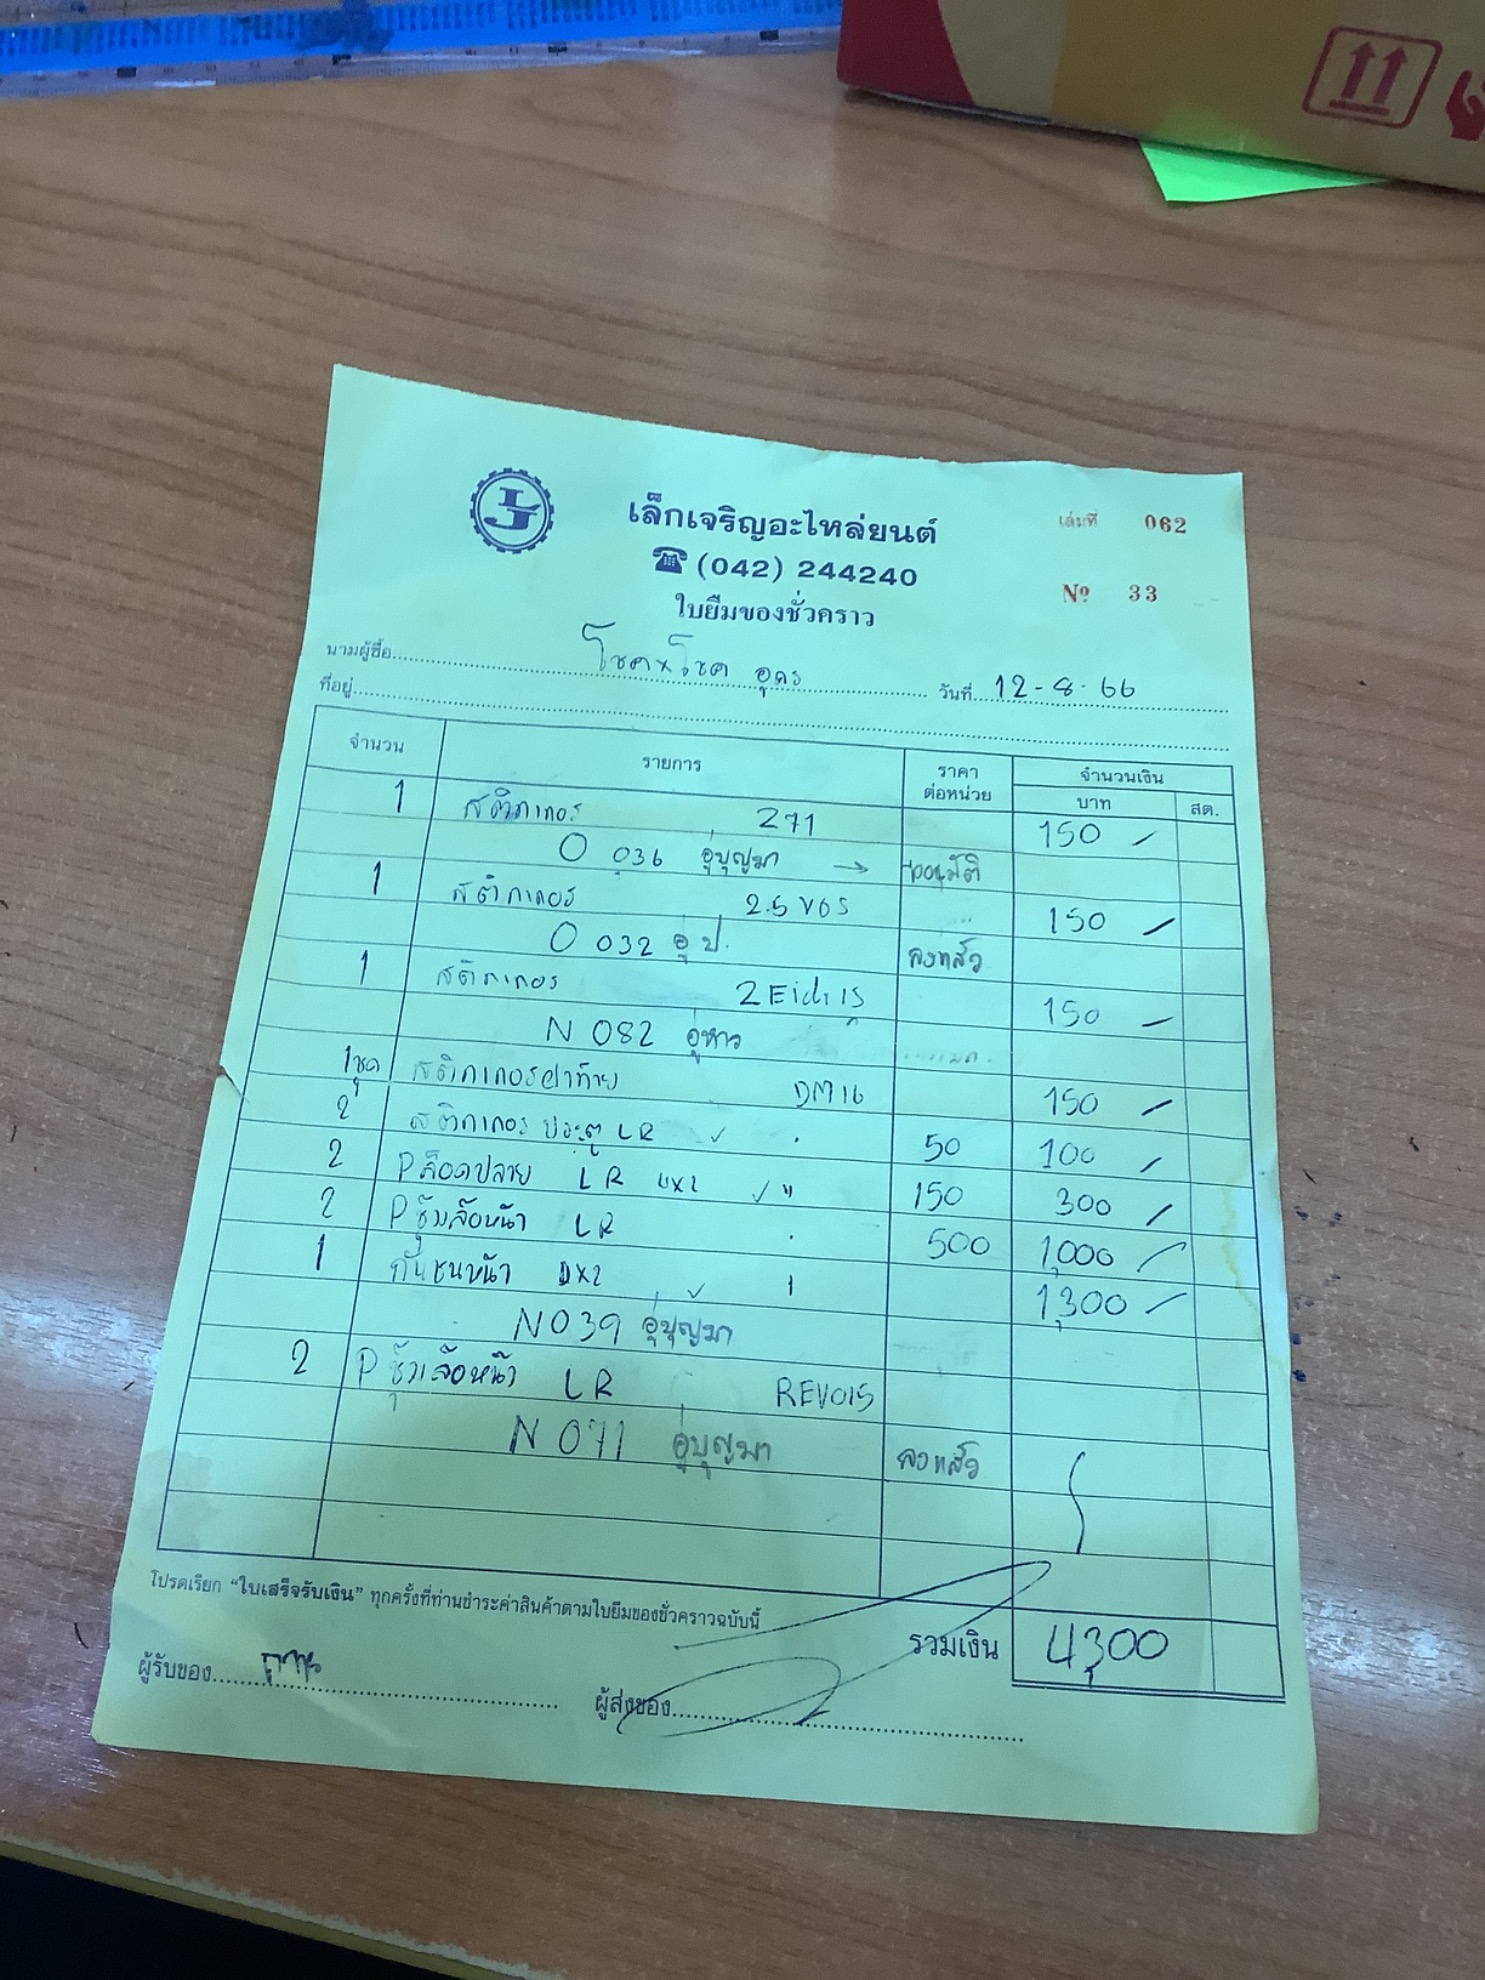 เล็กเจริญอะไหล่ยนต์
เล่มที่ 062
☎ (042) 244240
Nº 33
ใบยืมของชั่วคราว
นามผู้ซื้อ โชค x โชค อุดร วันที่ 12-8-66
ที่อยู่
จำนวน รายการ ราคาต่อหน่วย จำนวนเงิน
บาท สต.
1 สติกเกอร์ 271 150 -
O 036 อู่บุญมา → อนุมัติ
1 สติกเกอร์ 2.5 VGS 150 -
O 032 อู่ ป. ลงแล้ว
1 สติกเกอร์ 150 -
N 082 อู่หาว
1ชุด สติกเกอร์ฝาท้าย DM16 150 -
2 สติกเกอร์ ประตู LR ✓ 50 100 -
2 P ล็อคปลาย LR 4x2 ✓ " 150 300 -
2 P ซุ้มล้อหน้า LR 500 1,000 -
1 กันชนหน้า 4x2 ✓ 1,300 -
N039 อู่บุญมา
2 P ซุ้มล้อหน้า LR REVO15
N 071 อู่บุญมา ลงแล้ว
โปรดเรียก "ใบเสร็จรับเงิน" ทุกครั้งที่ท่านชำระค่าสินค้าตามใบยืมของชั่วคราวฉบับนี้
รวมเงิน 4,300
ผู้รับของ
ผู้ส่งของ